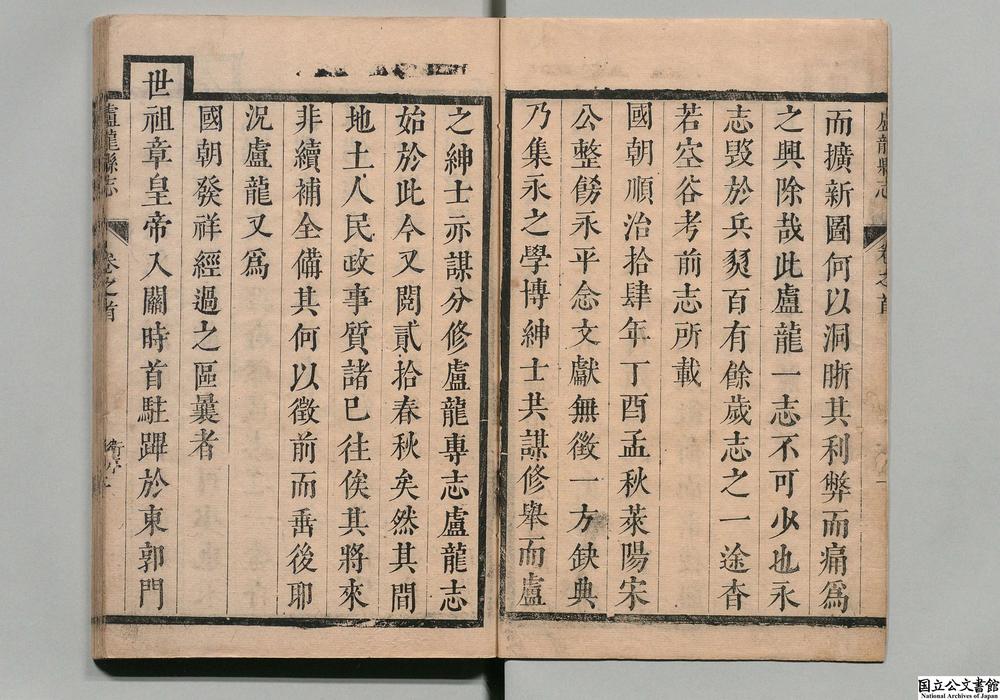 盧龍縣志
卷之首
而擴新圖何以洞晰其利弊而痛爲
之興除哉此盧龍一志不可少也永
志毀於兵燹百有餘歲志之一途杳
若空谷考前志所載
國朝順治拾肆年丁酉孟秋萊陽宋
公整飭永平念文獻無徵一方缺典
乃集永之學博紳士共謀修舉而盧
之紳士亦謀分修盧龍專志盧龍志
始於此今又閱貳拾春秋矣然其間
地土人民政事質諸已往俟其將來
非續補全備其何以徵前而垂後耶
況盧龍又爲
國朝發祥經過之區曩者
世祖章皇帝入關時首駐蹕於東郭門
盧龍縣志
卷之首
国立公文書館
National Archives of Japan